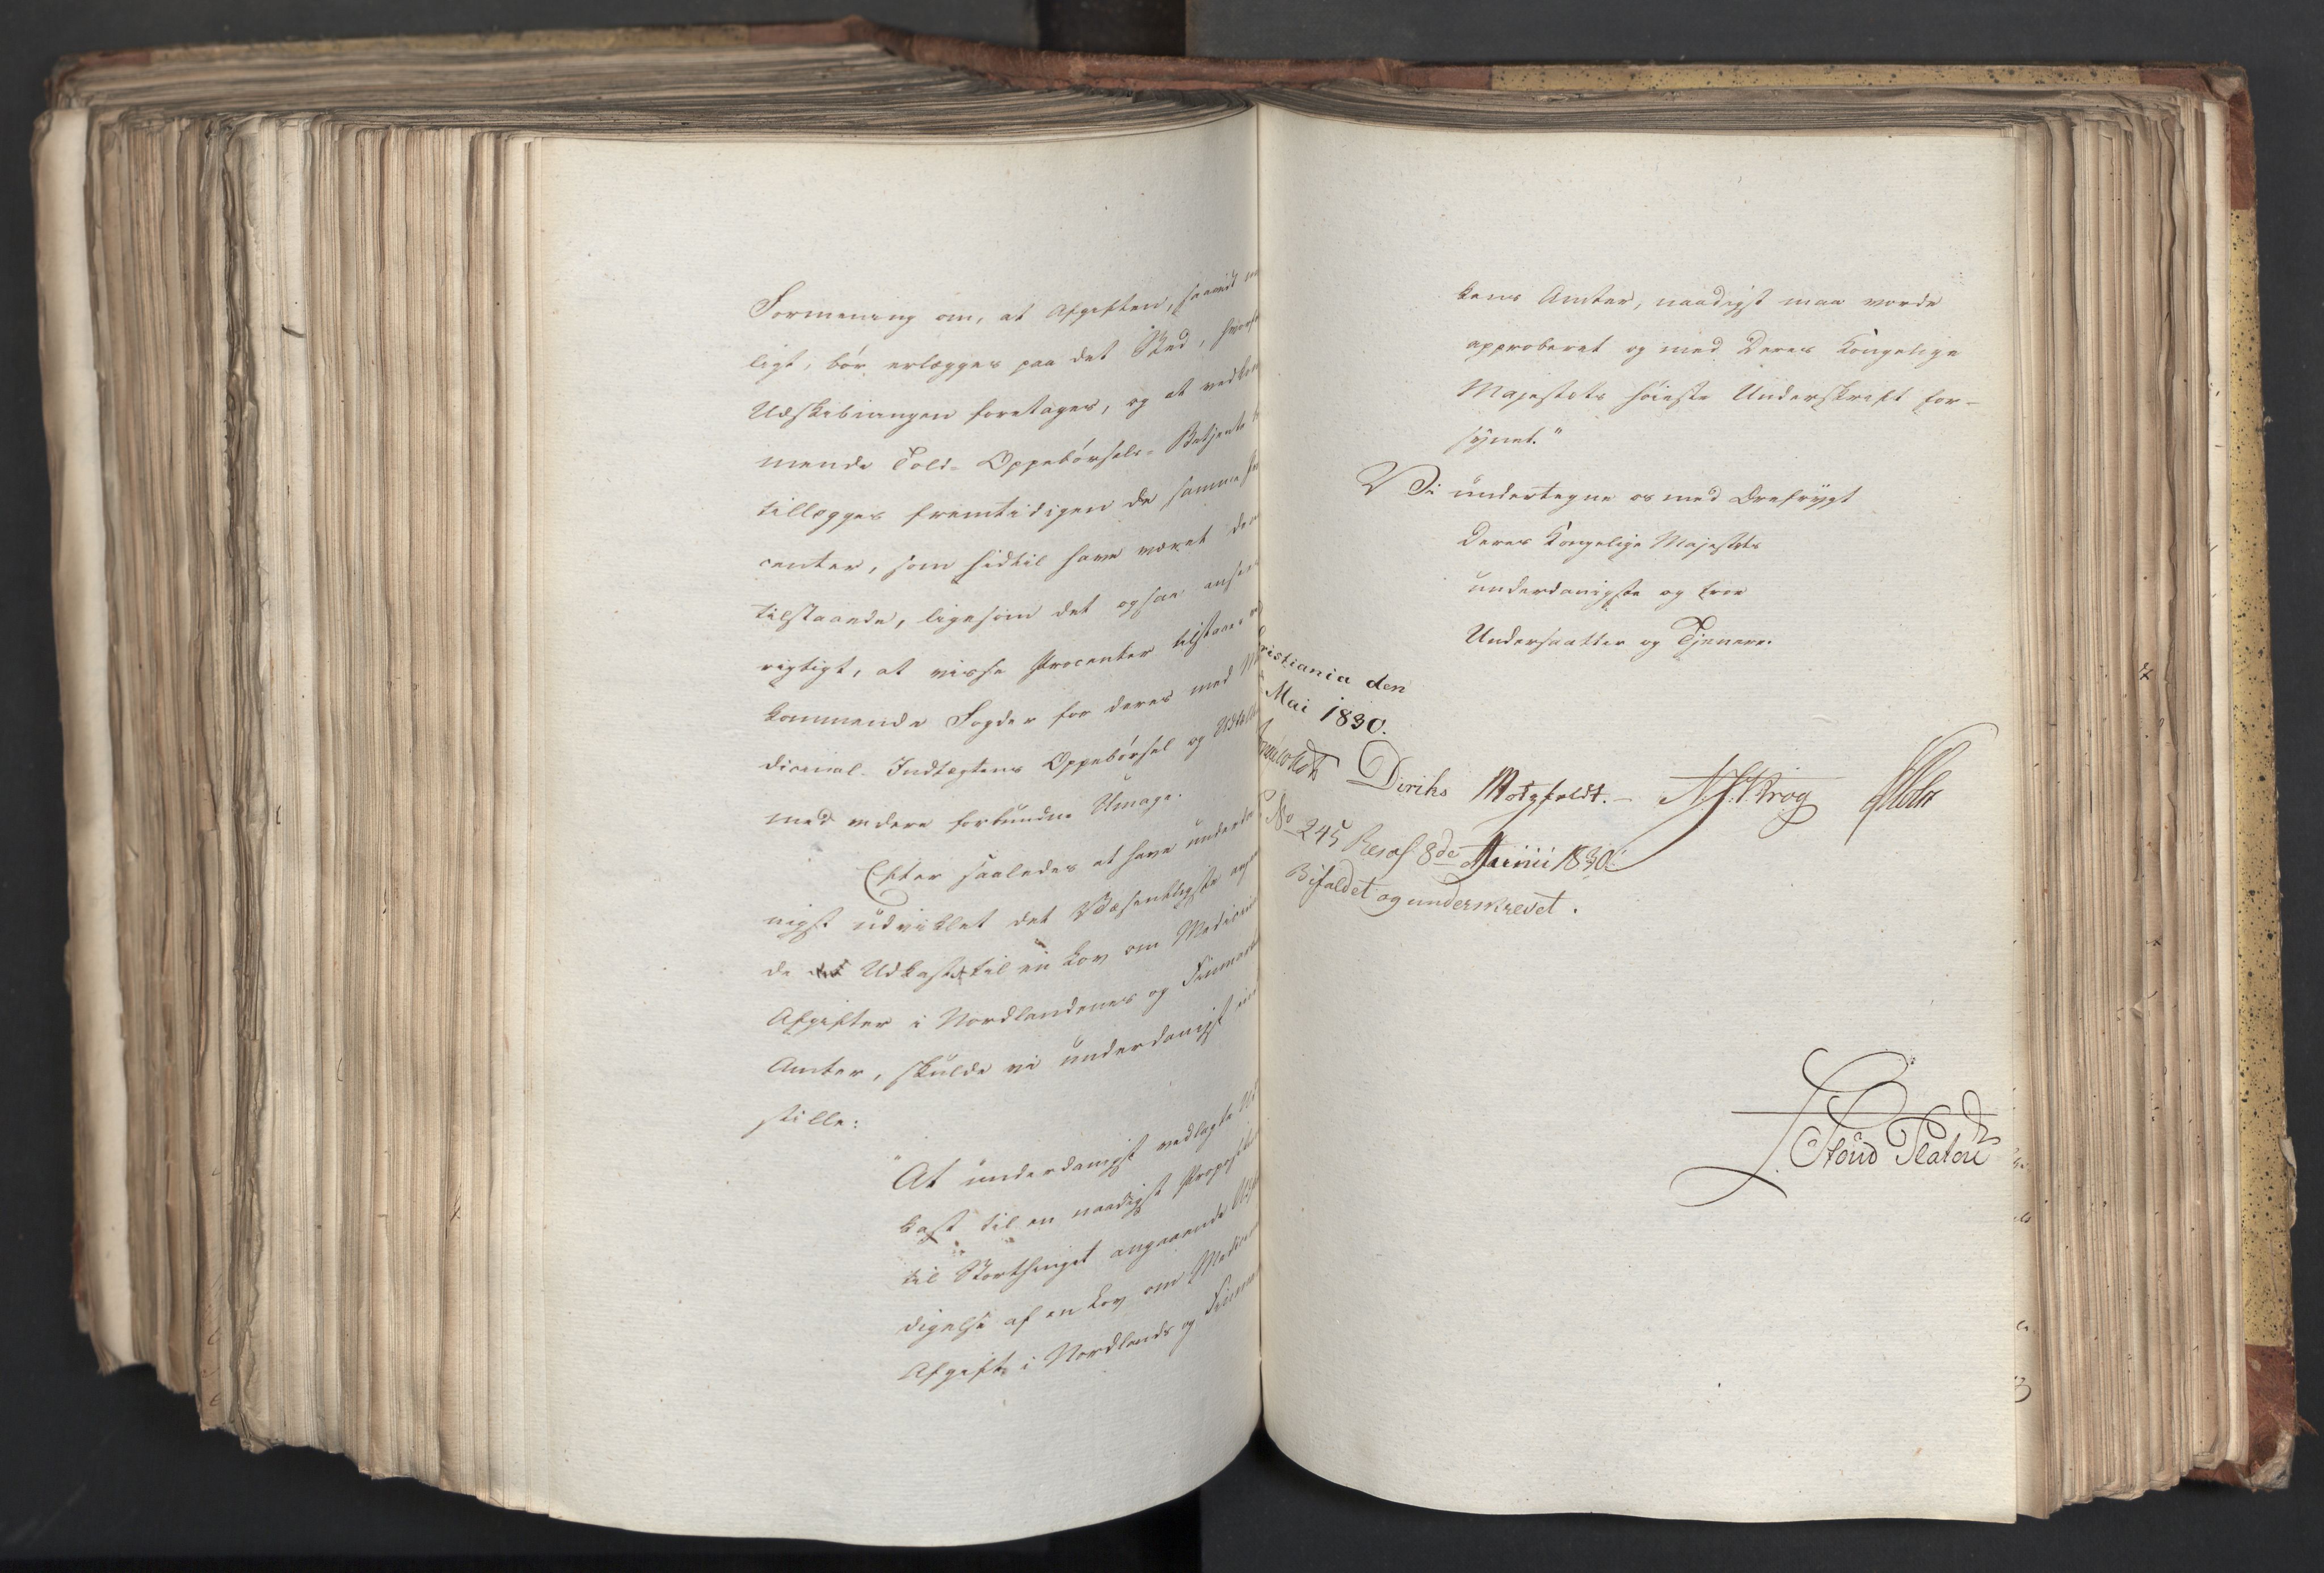 Formening om, at Afgiften, saavidt
ligt, bör erlægges paa det Sted, hvorfra
Udskibningen foretages, og at vedkom
mende Told-Oppebörsels-Betjente
tillægges fremtidigen de samme Pro
center, som hidtil have været dem
tilstaaede, ligesom det ogsaa ansees
rigtigt, at visse Procenter tilstaaes ved
kommende Fogder for deres med Me
dicinal-Indtægtens Oppebörsel og
med videre forbundne Umage.
Efter saaledes at have underda
nigst udviklet det Væsentligste angaaen
de Udkast til en Lov om Medicinal
Afgifter i Nordlandenes og Finmarkens
Amter, skulde vi underdanigst ind
stille:
"At underdanigst vedlagte Ud
kast til en naadigst Proposition
til Storthinget angaaende
digelse af en Lov om Medicinal
Afgift i Nordlands og Finmar
kens Amter, naadigst maa vorde
approberet og med Deres Kongelige
Majestæts höieste Underskrift for-
synet."
Vi undertegne os med Ærefrygt
Deres Kongelige Majestæts
underdanigste og troe
Undersaatter og Tjenere.
ristiania den
Mai 1830.
Diriks Motzfeldt. Krog
No 245 Resol. 8de Junii 1830.
Bifaldet og underskrevet.
Due Platou